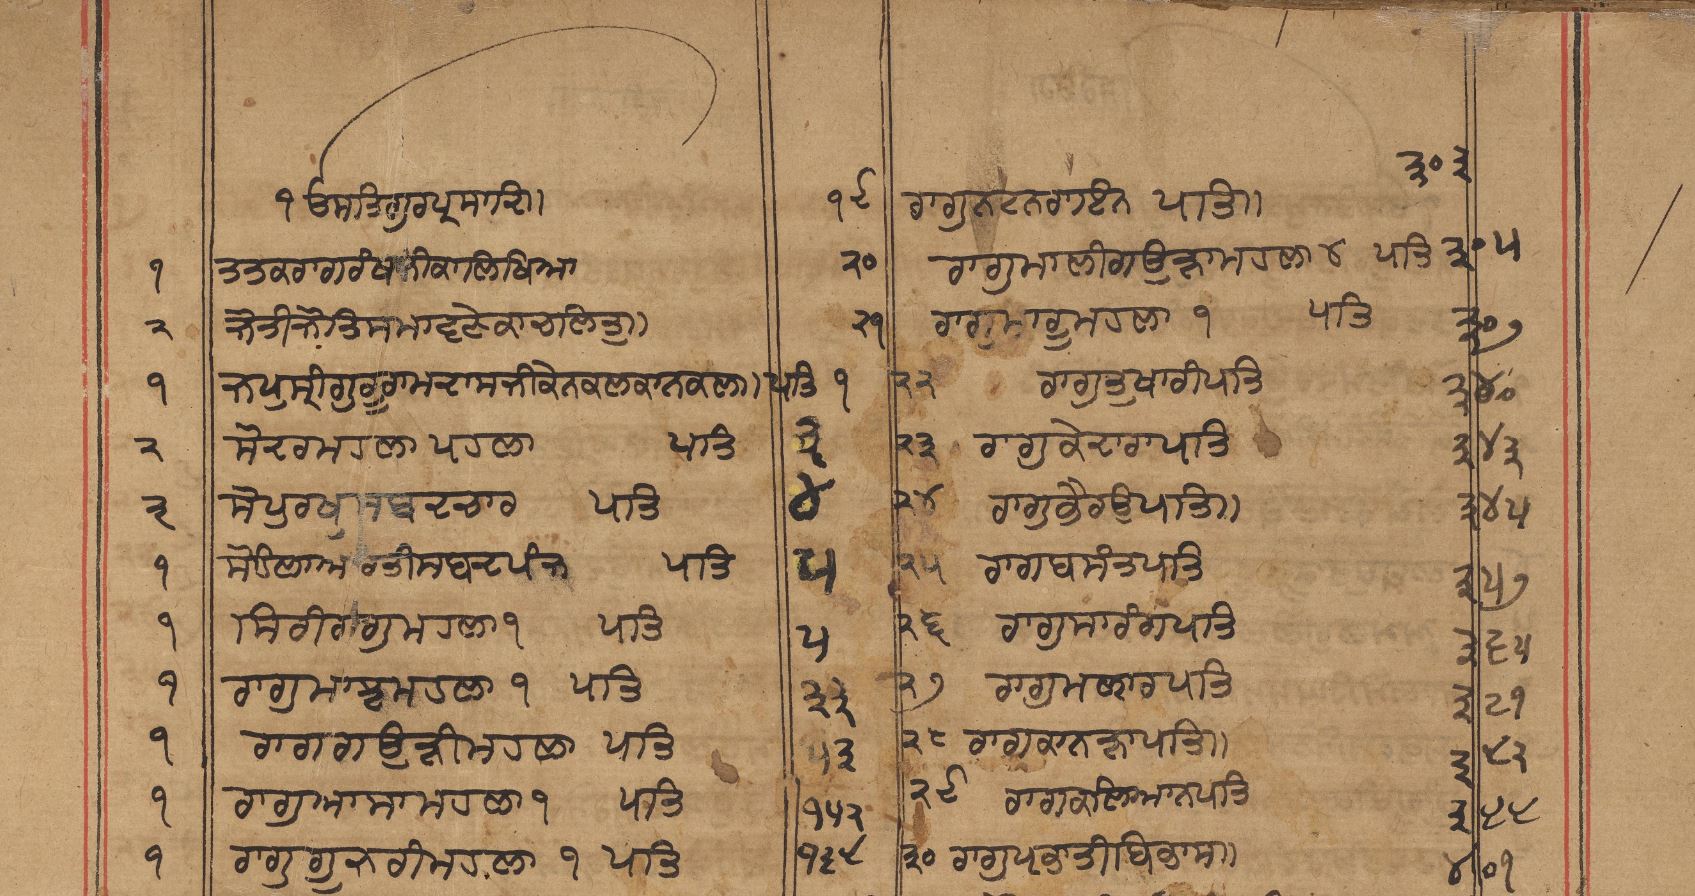 ੧ਓ ਸਤਿਗੁਰਪ੍ਰਸਾਦਿ॥
੧ ਤਤਕਰਾਗਰੰਥ ਨੀਕਾਲਿਖਿਆ
੨ ਜੋਤੀਜੋਤਿਸਮਾਵਣੇਕਾਚਲਿਤ੍ਰ॥
੧ ਜਪੁਸ੍ਰੀਗੁਰੂਰਾਮਦਾਸਜੀਕੇਨਕਲਕਾਨਕਲ॥ ਪਤਿ ੧
੨ ਸੋਦਰਮਹਲਾ ਪਹਲਾ ਪਤਿ ੩
੩ ਸੋਪੁਰਖੁਸਬਦਚਾਰ ਪਤਿ ੪
੧ ਸੋਹਿਲਾਆਰਤੀਸਬਦਪੰਜ ਪਤਿ ੫
੧ ਸਿਰੀਰਾਗੁਮਹਲਾ ੧ ਪਤਿ ੫
੧ ਰਾਗੁਮਾਝਮਹਲਾ ੧ ਪਤਿ ੩੩
੧ ਰਾਗਗਉੜੀਮਹਲਾ ਪਤਿ ੫੩
੧ ਰਾਗੁਆਸਾਮਹਲਾ ੧ ਪਤਿ ੧੫੨
੧ ਰਾਗੁਗੁਜਰੀਮਹਲਾ ੧ ਪਤਿ ੧੬੮
੧੯ ਰਾਗੁਨਟਨਰਾਇਨ ਪਤਿ॥ ੩੦੩
੨੦ ਰਾਗੁਮਾਲੀਗਉੜਾਮਹਲਾ ੪ ਪਤਿ ੩੦੫
੨੧ ਰਾਗੁਮਾਰੂਮਹਲਾ ੧ ਪਤਿ ੩੦੭
੨੨ ਰਾਗੁਤੁਖਾਰੀਪਤਿ ੩੪੦
੨੩ ਰਾਗੁਕੇਦਾਰਾਪਤਿ ੩੪੩
੨੪ ਰਾਗੁਭੈਰਉਪਤਿ॥ ੩੪੫
੨੫ ਰਾਗਬਸੰਤਪਤਿ ੩੫੭
੨੬ ਰਾਗੁਸਾਰੰਗਪਤਿ ੩੬੫
੨੭ ਰਾਗੁਮਲਾਰਪਤਿ ੩੮੧
੨੮ ਰਾਗੁਕਾਨੜਾਪਤਿ॥ ੩੯੨
੨੯ ਰਾਗਕਲਿਆਨਪਤਿ ੩੯੯
੩੦ ਰਾਗੁਪਭਾਤੀਬਿਭਾਸ॥ ੪੦੧